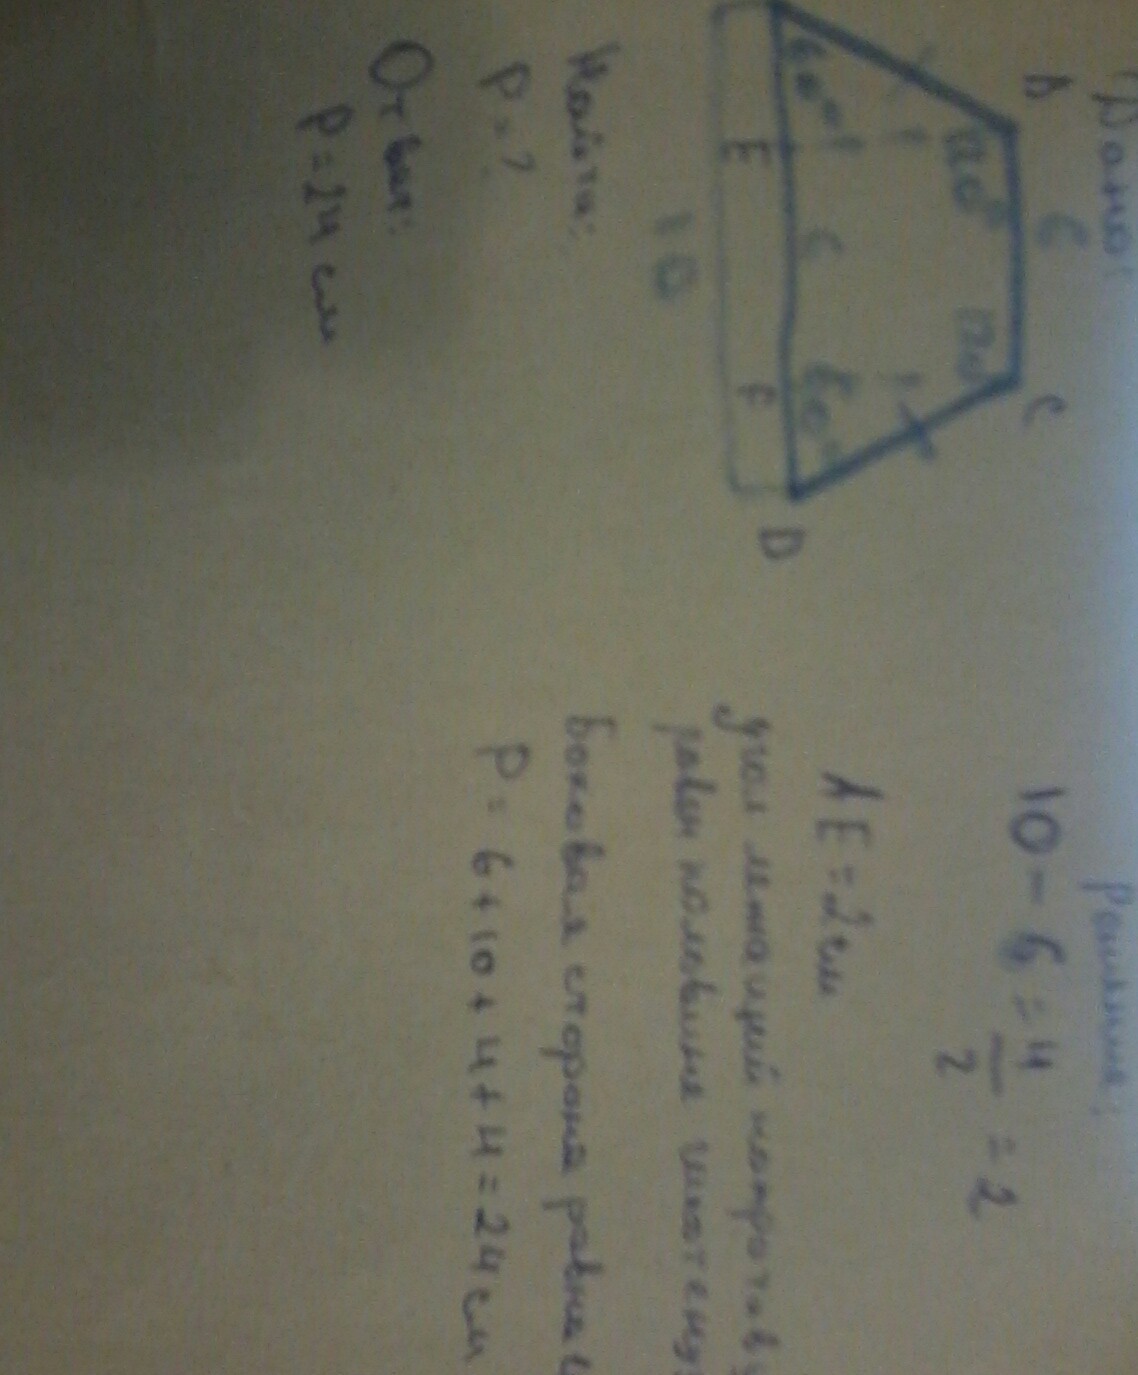 Дано:
B 6 C
120° 120
60° 6 60°
E F D
10
Найти:
P = ?
Ответ:
P = 24 см
Решение:
10 - 6 = 4/2 = 2
AE = 2 см
угол лежащий напротив
равен половине
Боковая сторона равна
P = 6 + 10 + 4 + 4 = 24 см